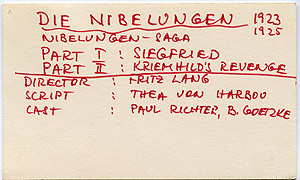 DIE NIBELUNGEN 1923
NIBELUNGEN-SAGA 1925
PART I : SIEGFRIED
PART II : KRIEMHILD'S REVENGE
DIRECTOR : FRITZ LANG
SCRIPT : THEA VON HARBOU
CAST : PAUL RICHTER, B. GOETZKE